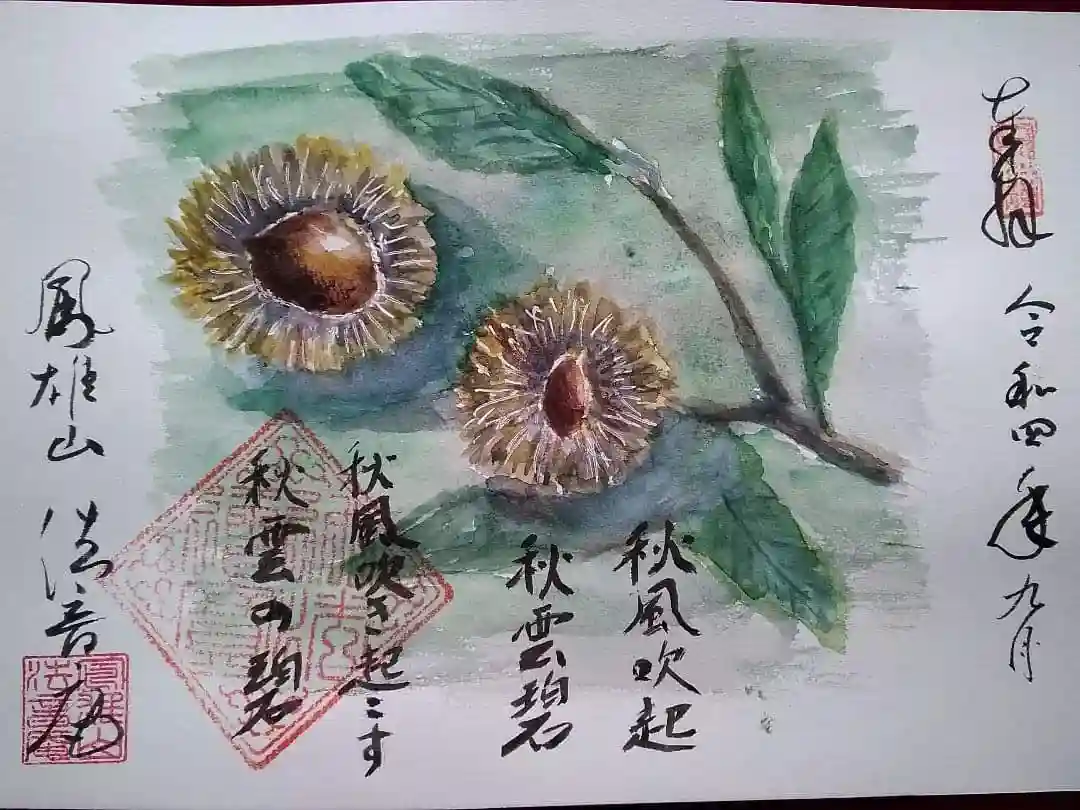 奉拝 令和四年九月
秋風吹起
秋雲碧
秋風吹き起こす
秋雲の碧
鳳雄山 法音庵